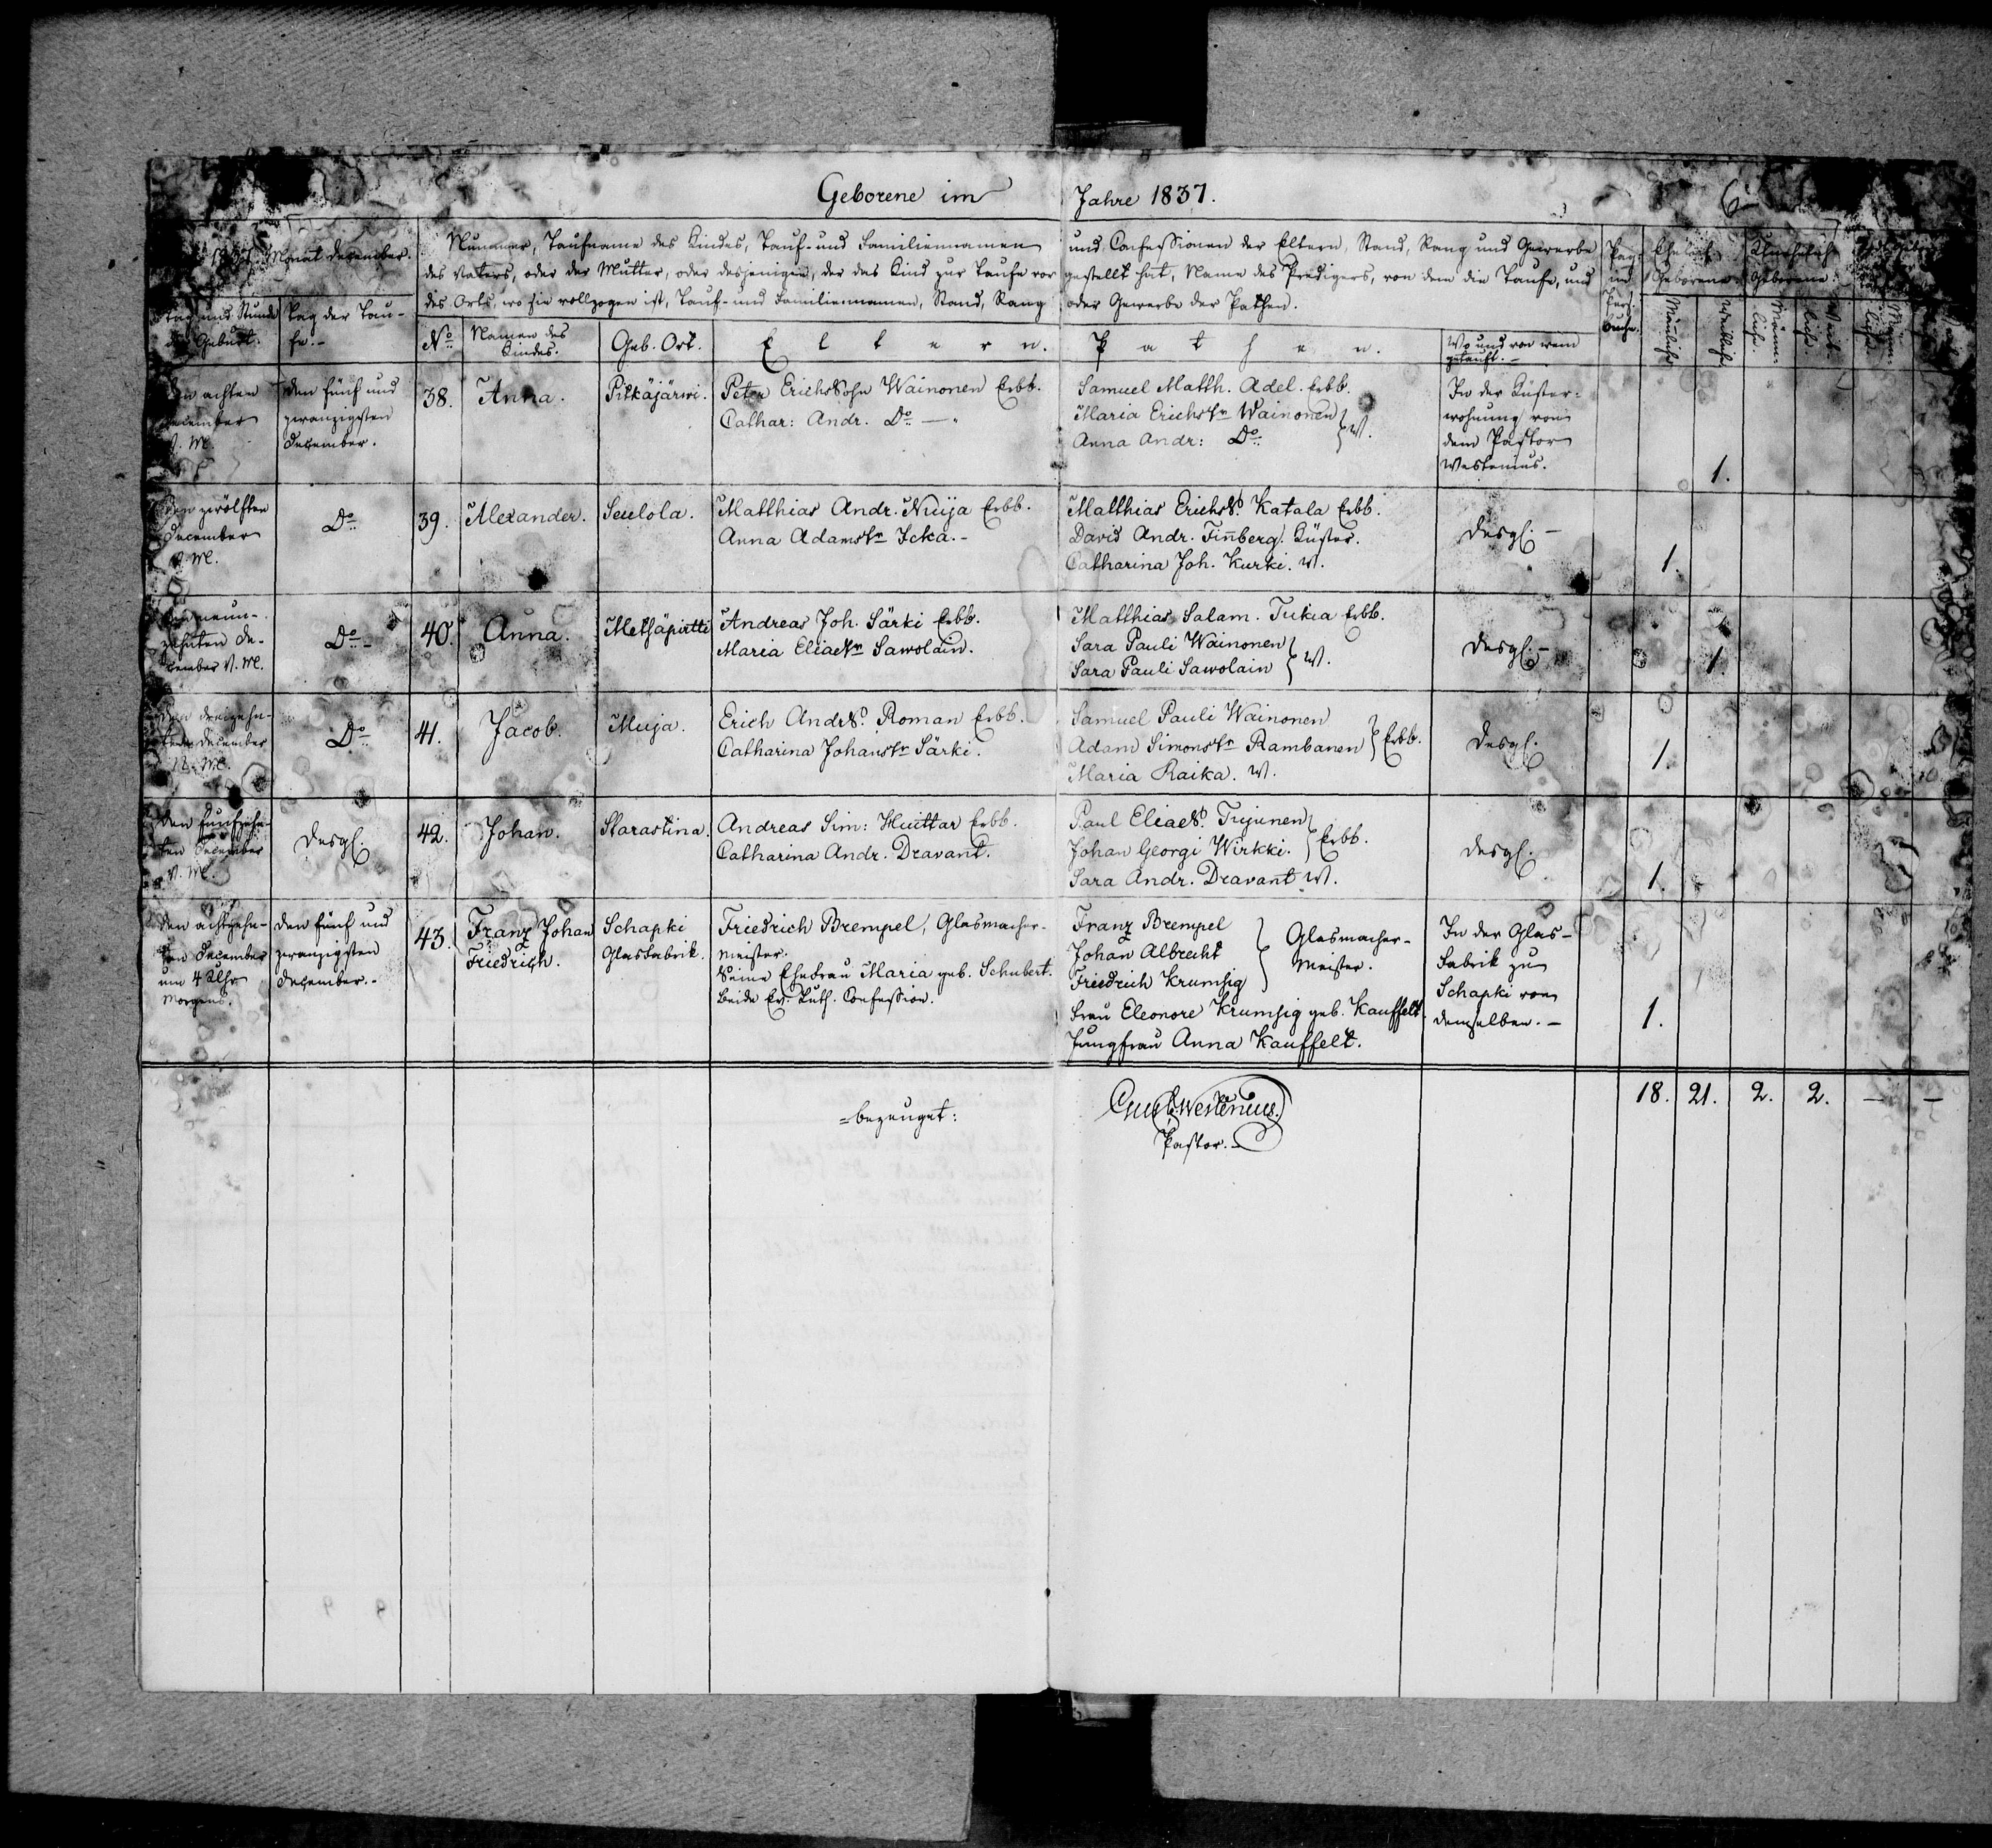 Geborene im Jahre 1837.
1837 Monat December.
Nummer, Taufname des Kindes, Tauf- und Familiennamen und Confessionen der Eltern, Stand, Rang und Gewerbe
des Vaters, oder der Mutter, oder desjenigen, der das Kind zur Taufe vorgestellt hat, Name des Predigers, von dem die Taufe, und
des Orts, wo sie vollzogen ist, Tauf- und Familiennamen, Stand, Rang oder Gewerbe der Pathen.
Tag und Stunde der Geburt.
Tag der Taufe.-
No
Namen des Kindes.
Geb. Ort.
Eltern.
Pathen.
Wo und von wem getauft.-
Pag. im Pers. buche.
Ehelich Geborene.
Männliche
Weibliche
Unehelich Geborene.
Männliche.
Weibliche.
Den achten
December
V. M.
Den fünf und
zwanzigsten
December.
38.
Anna.
Pitkäjärwi.
Peter Erichs Sohn Wainonen Erbb.
Cathar: Andr. Do —
Samuel Matth. Adel. Erbb.
Maria Erichstr Wainonen } W.
Anna Andr: Do
In der Küster-
wohnung von
dem Pastor
Westenius.
1.
Den zwölften
December
V. M.
Do
39.
Alexander.
Seulola.
Matthias Andr. Nuija Erbb.
Anna Adamstr Icka.-
Matthias Erichss. Katala Erbb.
David Andr. Tin̄berg. Küster.
Catharina Joh. Kurki. W.
Desgl.-
1.
Den neun-
zehnten De-
cember V. M.
Do-
40.
Anna.
Metsäpirtti
Andreas Joh. Särki Erbb.
Maria Eliaetr Sawolain.
Matthias Salam. Tukia Erbb.
Sara Pauli Wainonen } W.
Sara Pauli Sawolain
Desgl.-
1.
Den dreizehn-
ten December
Do
41.
Jacob.
Muja.
Erich Andrs. Roman Erbb.
Catharina Johanstr Särki.
Samuel Pauli Wainonen
Adam Simonstr Rambanen } Erbb.
Maria Raika. W.
Desgl.
1.
Den funfzehn-
ten December
V. M.
Desgl.
42.
Johan.
Starastina.
Andreas Sim: Huittar Erbb.
Catharina Andr. Dravant.
Paul Eliaes. Tujunen
Johan Georgi Wirkki. } Erbb.
Sara Andr. Dravant W.
Desgl.
1.
Den achtzehn-
ten December
um 4 Uhr
Morgens.
Den fünf und
zwanzigsten
December.-
43.
Franz Johan
Friedrich.
Schapki
Glasfabrik.
Friedrich Brempel, Glasmacher-
meister.
Seine Ehefrau Maria geb. Schubert.
Beide Ev. Luth. Confession.
Franz Brempel
Johan Albrecht } Glasmacher-
Friedrich Krumsig Meister.
Frau Eleonore Krumsig geb. Kauffelt
Jungfrau Anna Kauffelt.
In der Glas-
fabrik zu
Schapki von
demselben.-
1.
18. 21. 2. 2. — —
bezeuget:
Westenius.
Pastor.-